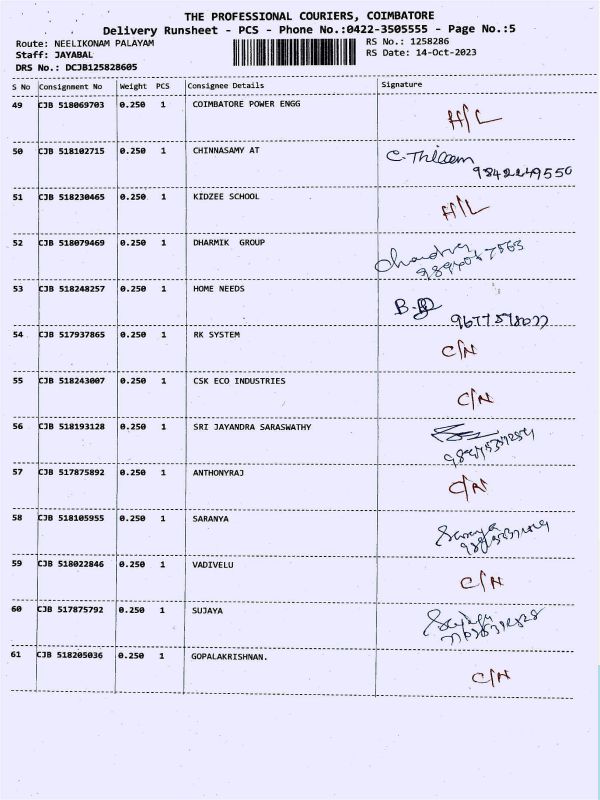 THE PROFESSIONAL COURIERS, COIMBATORE
Delivery Runsheet - PCS - Phone No.:0422-3505555 - Page No.:5
Route: NEELIKONAM PALAYAM RS No.: 1258286
Staff: JAYABAL RS Date: 14-Oct-2023
DRS No.: DCJB125828605
S No Consignment No Weight PCS Consignee Details Signature
49 CJB 518069703 0.250 1 COIMBATORE POWER ENGG H/L
50 CJB 518102715 0.250 1 CHINNASAMY AT
9842249550
51 CJB 518230465 0.250 1 KIDZEE SCHOOL H/L
52 CJB 518079469 0.250 1 DHARMIK GROUP
53 CJB 518248257 0.250 1 HOME NEEDS
54 CJB 517937865 0.250 1 RK SYSTEM C/N
55 CJB 518243007 0.250 1 CSK ECO INDUSTRIES C/N
56 CJB 518193128 0.250 1 SRI JAYANDRA SARASWATHY
57 CJB 517875892 0.250 1 ANTHONYRAJ C/N
58 CJB 518105955 0.250 1 SARANYA
59 CJB 518022846 0.250 1 VADIVELU C/N
60 CJB 517875792 0.250 1 SUJAYA
61 CJB 518205036 0.250 1 GOPALAKRISHNAN. C/N